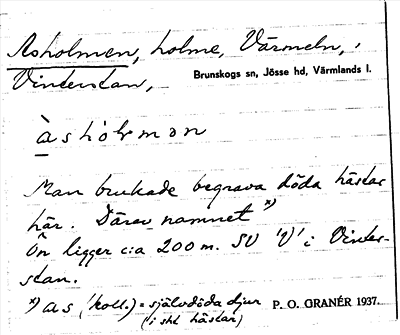 Asholmen, holme, Värmeln,
Vinterstan, Brunskogs sn, Jösse hd, Värmlands l.
àshòlmən
Man brukade begrava döda hästar
här. Därav namnet x)
Ön ligger c:a 200 m. SV 'V' i Vinter-
stan.
x) as (koll.) = självdöda djur
(i sht hästar) P. O. GRANÉR 1937.